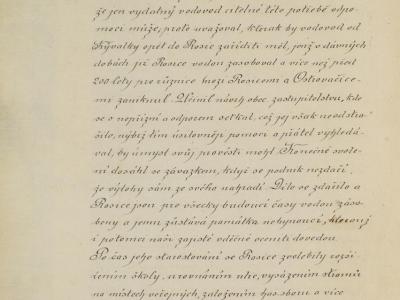 že jen vydatný vodovod citelné této potřebě odpo-
moci může, proto uvažoval, kterak by vodovod od
Křývalky opět do Rosic zaříditi měl, jenž v dávných
dobách již Rosice vodou zásoboval a více než před
200 lety pro různice mezi Rosicemi a Ostrovačice-
mi zaniknul. Učinil návrh obec. zastupitelstvu, kde
se s nepřízní a odporem setkal, což jej však neodstra-
šilo, nýbrž tím úsilovněji pomoci a přátel vyhledá-
val, by úmysl svůj provésti mohl. Konečně svole-
ní dosáhl se závazkem, když se podnik nezdaří,
že výlohy sám ze svého nahradí. Dílo se zdařilo a
Rosice jsou pro všecky budoucí časy vodou záso-
beny a jemu zůstává památka nehynoucí, kterouž
i potomci naši zajisté vděčně oceniti dovedou.
Po čas jeho starostování se Rosice zvelebily rozší-
řením školy, urovnáním ulic, vysázením stromů
na místech veřejných, založením has. sboru a více